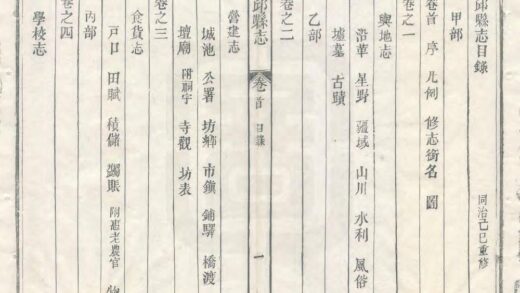 邱縣志目錄 同治己巳重修
甲部
卷首 序 凡例 修志銜名 圖
卷之一
輿地志
沿革 星野 疆域 山川 水利 風俗
墟墓 古蹟
乙部
卷之二
邱縣志 卷首 目錄 一
營建志
城池 公署 坊鄉 市鎮 鋪驛 橋渡
壇廟 附祠宇 寺觀 坊表
卷之三
食貨志
戶口 田賦 積儲 蠲賑 附恩老農官
丙部
卷之四
學校志